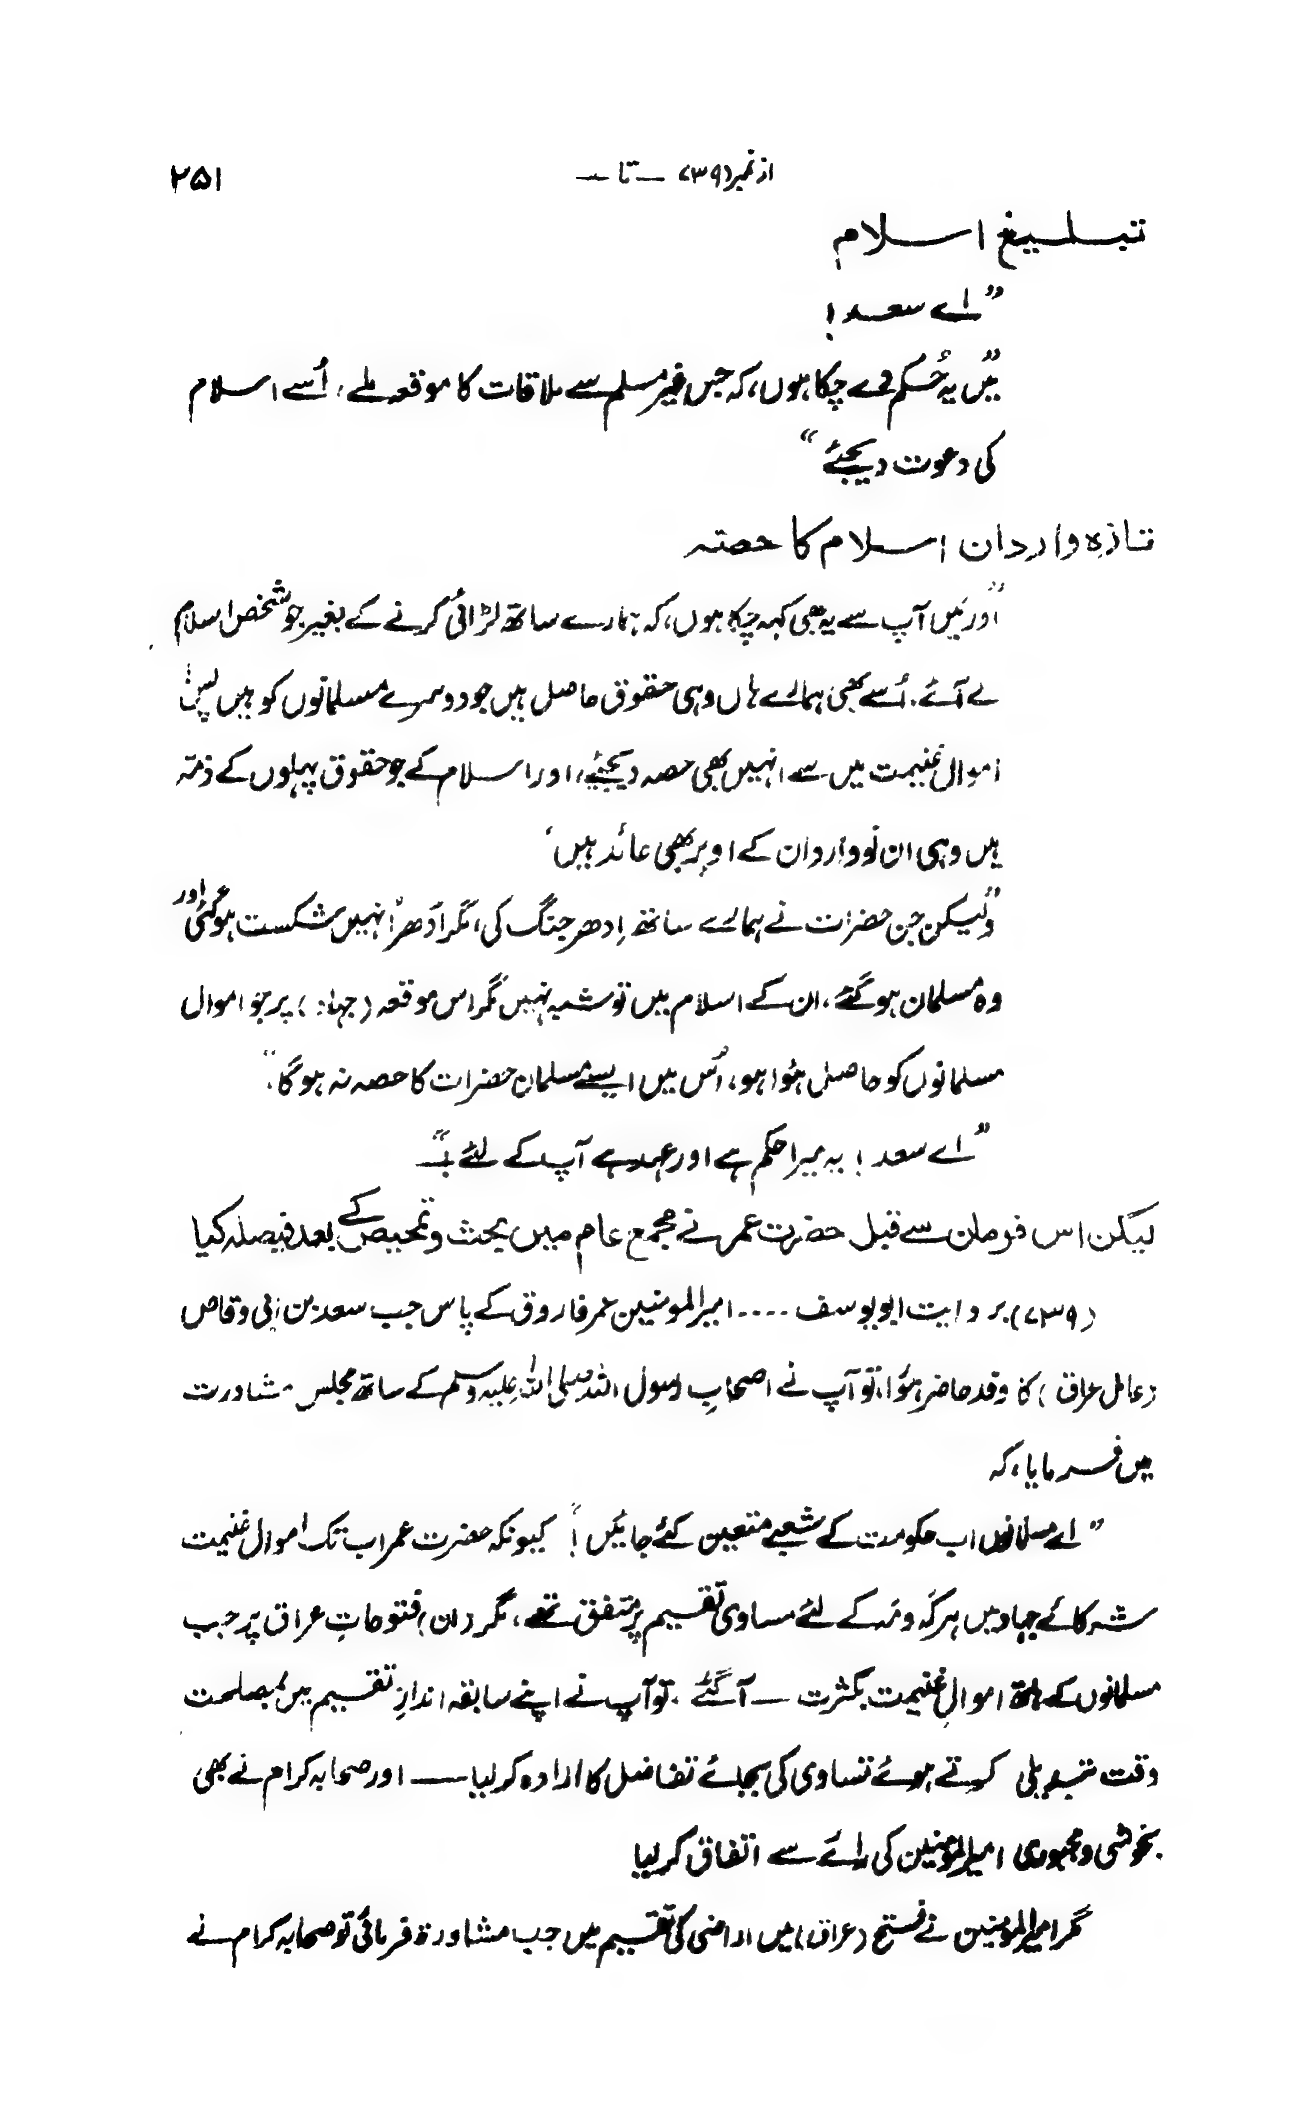 از نمبر (۷۳۹) — تا — ۲۵۱
تبلیغ اسلام
”اے سعد!
”میں یہ حُکم دے چکا ہوں، کہ جس غیر مسلم سے ملاقات کا موقعہ ملے، اُسے اسلام
کی دعوت دیجئے“
تازہ واردان اسلام کا حصتہ
”اور میں آپ سے یہ بھی کہہ چکا ہوں، کہ ہمارے ساتھ لڑائی کرنے کے بغیر جو شخص اسلام
لے آئے. اُسے بھی ہمارے ہاں وہی حقوق حاصل ہیں جو دوسرے مسلمانوں کو ہیں پس:
اموال غنیمت میں سے انہیں بھی حصہ دیجئے، اور اسلام کے جو حقوق پہلوں کے ذمّہ
ہیں وہی ان نو واردان کے اوپر بھی عائد ہیں“
”لیکن جن حضرات نے ہمارے ساتھ اِدھر جنگ کی، مگر اُدھر اُنہیں شکست ہو گئی اور
وہ مسلمان ہو گئے، ان کے اسلام میں تو شبہ نہیں مگر اس موقعہ (جہاد) پر جو اموال
مسلمانوں کو حاصل ہُوا ہو، اُس میں ایسے مسلمان حضرات کا حصہ نہ ہو گا“.
”اے سعد! یہ میرا حکم ہے اور عہد ہے آپ کے لئے!“—
لیکن اس فرمان سے قبل حضرت عمر نے مجمع عام میں بحث و تمحیص کے بعد فیصلہ کیا
(۷۳۹) بروایت ابو یوسف .... امیر المومنین عمر فاروق کے پاس جب سعد بن ابی وقاص
(عامل عراق) کا وفد حاضر ہُوا، تو آپ نے اصحابِ رسول اللہ صلی اللہ علیہ وسلم کے ساتھ مجلس مشاورت
میں فرمایا، کہ
”اے مسلمانوں اب حکومت کے شعبے متعین کئے جائیں!“ کیونکہ حضرت عمر اب تک اموال غنیمت
شرکائے جہاد میں ہر کہ و مہ کے لئے مساوی تقسیم پر متفق تھے، مگر (ان) فتوحاتِ عراق پر جب
مسلمانوں کے ہاتھ اموالِ غنیمت بکثرت — آ گئے. تو آپ نے اپنے سابقہ اندازِ تقسیم میں بمصلحت
وقت تبدیلی کرتے ہوئے تساوی کی بجائے تفاضل کا ارادہ کر لیا — اور صحابہ کرام نے بھی
بخوشی و مجبوری امیر المومنین کی رائے سے اتفاق کر لیا
مگر امیر المومنین نے فتح (عراق) میں اراضی کی تقسیم میں جب مشاورۃ فرمائی تو صحابہ کرام نے